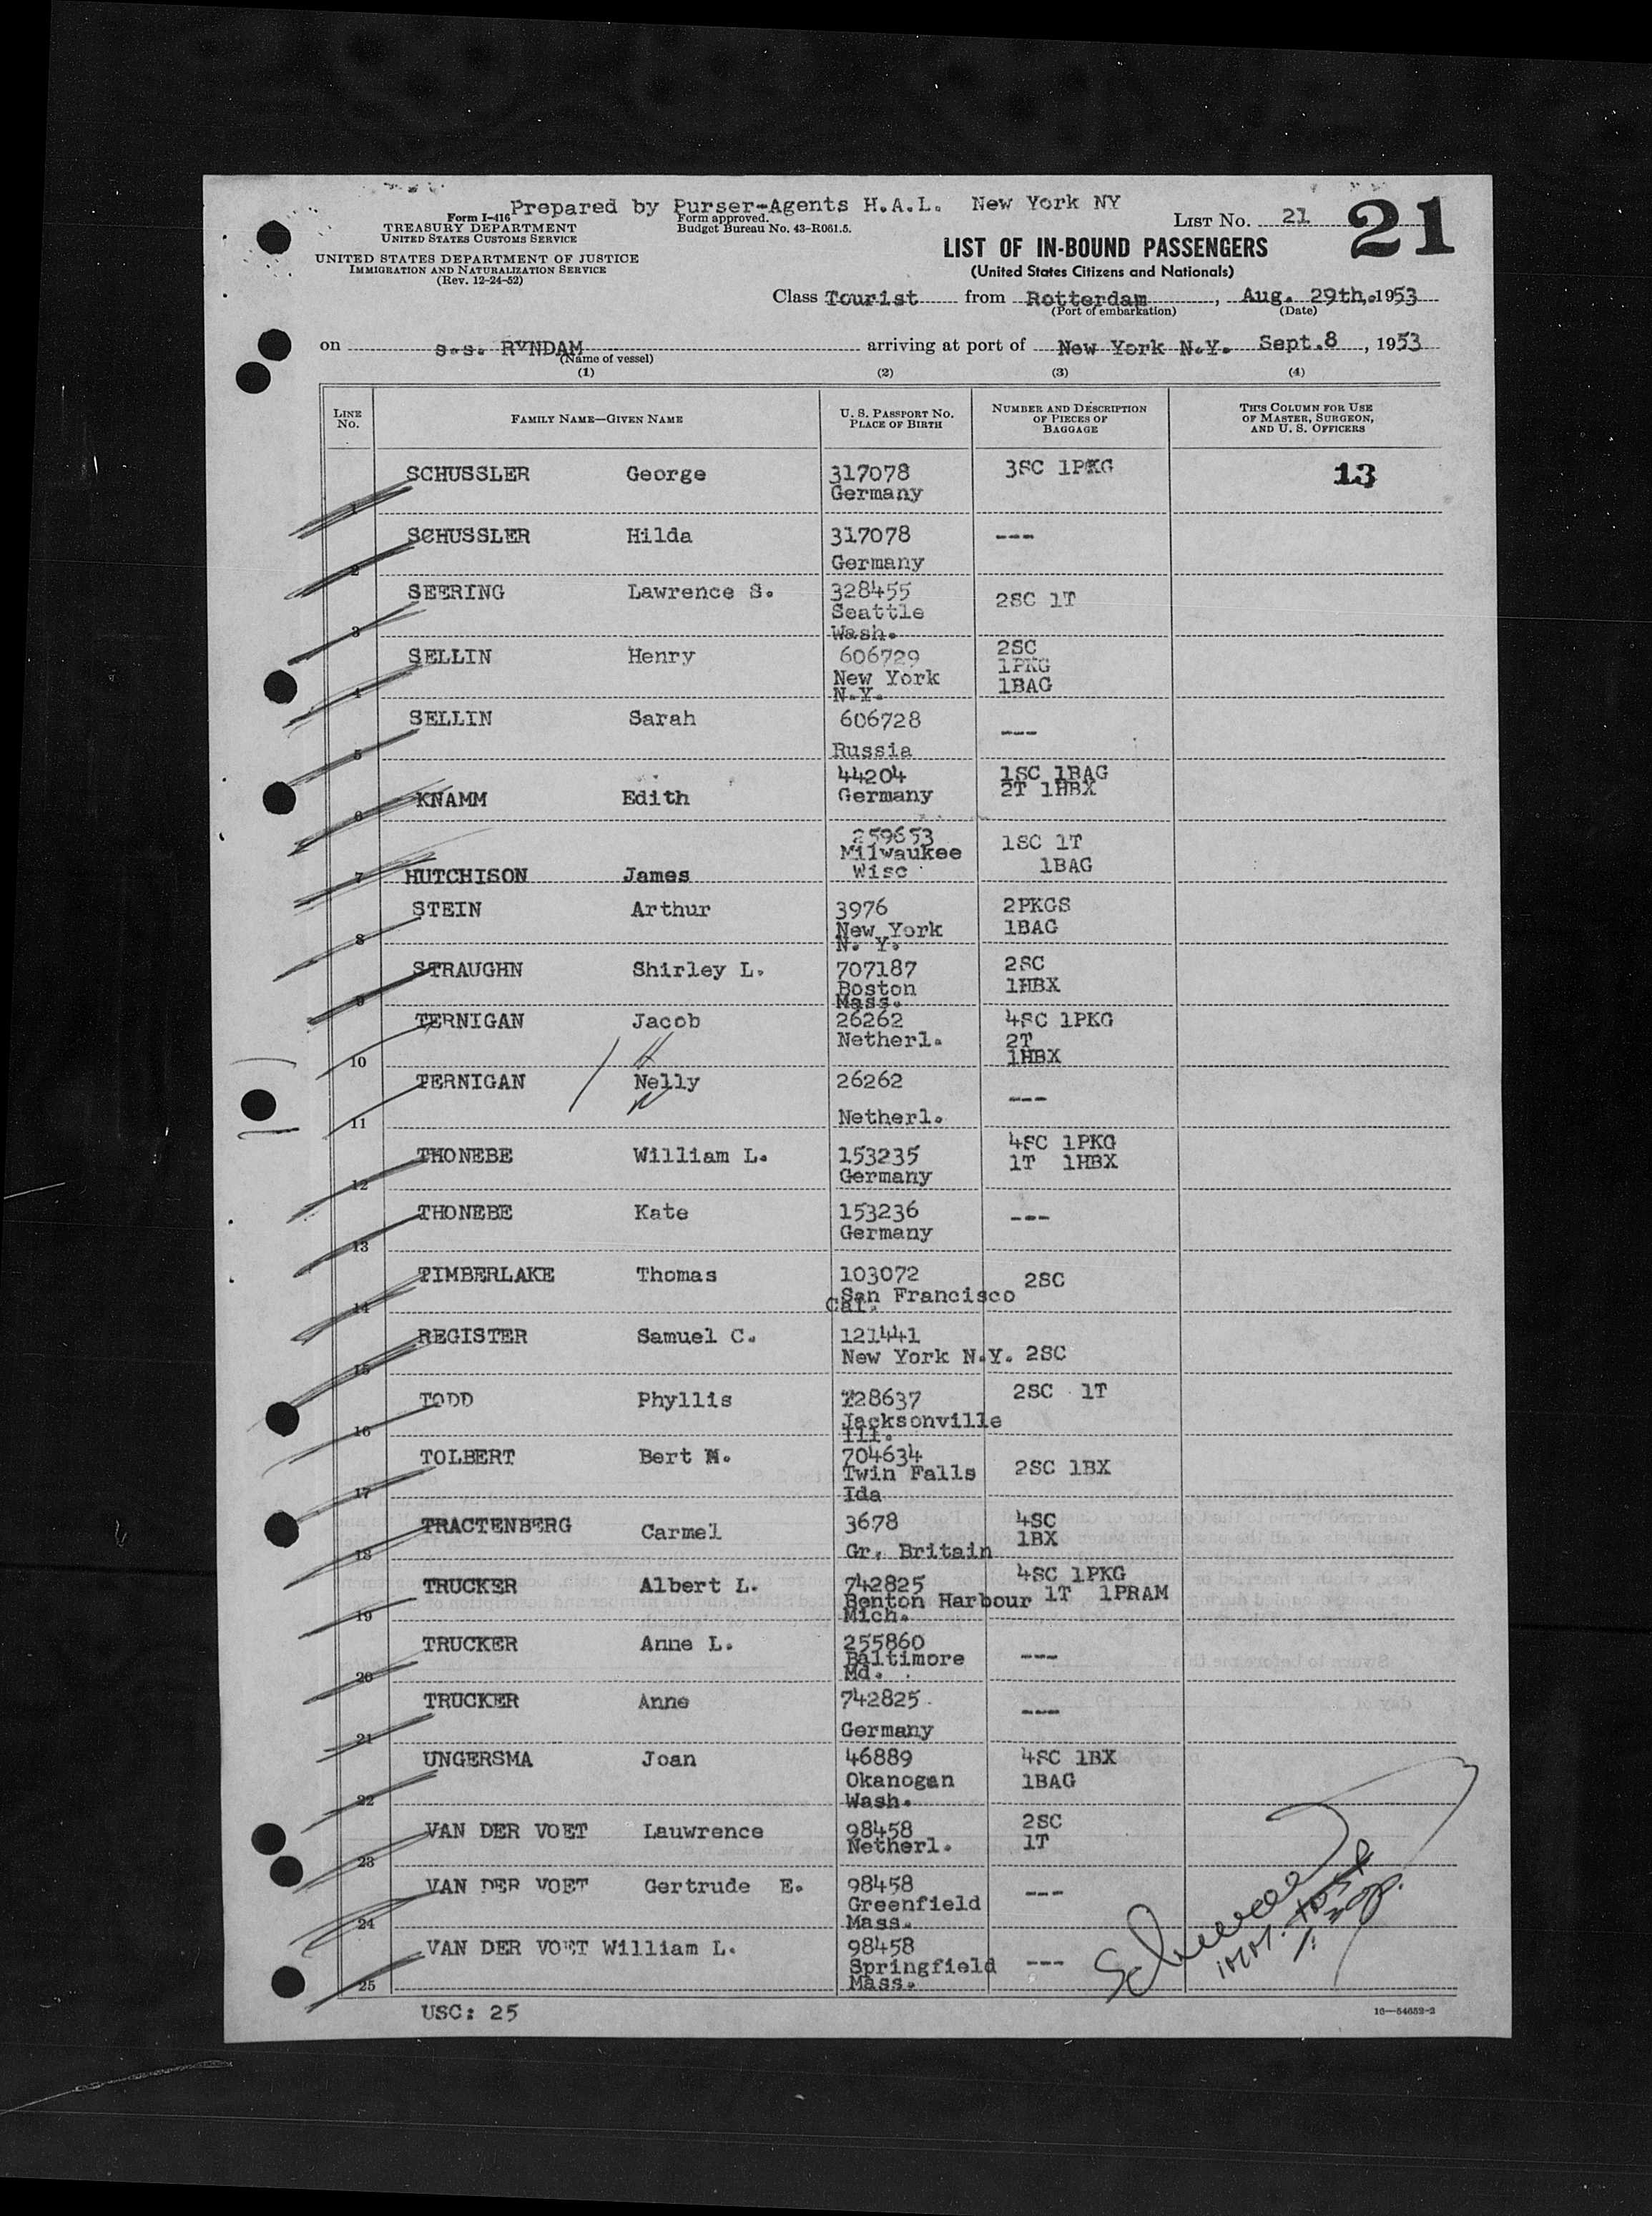 Prepared by Purser-Agents H.A.L. New York NY
Form I-416
TREASURY DEPARTMENT
UNITED STATES CUSTOMS SERVICE
Form approved.
Budget Bureau No. 43-R061.5.
LIST NO. 21
21
UNITED STATES DEPARTMENT OF JUSTICE
IMMIGRATION AND NATURALIZATION SERVICE
(Rev. 12-24-52)
LIST OF IN-BOUND PASSENGERS
(United States Citizens and Nationals)
Class Tourist from Rotterdam, Aug. 29th, 1953
(Port of embarkation) (Date)
on s.s. RYNDAM arriving at port of New York N.Y. Sept.8, 1953
(Name of vessel)
(1) (2) (3) (4)
LINE NO. FAMILY NAME—GIVEN NAME U. S. PASSPORT NO. PLACE OF BIRTH NUMBER AND DESCRIPTION OF PIECES OF BAGGAGE THIS COLUMN FOR USE OF MASTER, SURGEON, AND U. S. OFFICERS
1 SCHUSSLER George 317078 3SC 1PKG 13
Germany
2 SCHUSSLER Hilda 317078 ---
Germany
3 SEERING Lawrence S. 328455 2SC 1T
Seattle
Wash.
4 SELLIN Henry 606729 2SC
New York 1PKG
N.Y. 1BAG
5 SELLIN Sarah 606728 ---
Russia
6 KNAMM Edith 44204 1SC 1BAG
Germany 2T 1HBX
7 HUTCHISON James 259653 1SC 1T
Milwaukee 1BAG
Wisc
8 STEIN Arthur 3976 2PKGS
New York 1BAG
N. Y.
9 STRAUGHN Shirley L. 707187 2SC
Boston 1HBX
Mass.
10 TERNIGAN Jacob 26262 4SC 1PKG
Netherl. 2T
1HBX
11 TERNIGAN Nelly 26262 ---
Netherl.
12 THONEBE William L. 153235 4SC 1PKG
Germany 1T 1HBX
13 THONEBE Kate 153236 ---
Germany
14 TIMBERLAKE Thomas 103072 2SC
San Francisco
Cal.
15 REGISTER Samuel C. 121441
New York N.Y. 2SC
16 TODD Phyllis 228637 2SC 1T
Jacksonville
Ill.
17 TOLBERT Bert M. 704634 2SC 1BX
Twin Falls
Ida
18 TRACTENBERG Carmel 3678 4SC
Gr. Britain 1BX
19 TRUCKER Albert L. 742825 4SC 1PKG
Benton Harbour 1T 1PRAM
Mich.
20 TRUCKER Anne L. 255860 ---
Baltimore
Md.
21 TRUCKER Anne 742825 ---
Germany
22 UNGERSMA Joan 46889 4SC 1BX
Okanogan 1BAG
Wash.
23 VAN DER VOET Lauwrence 98458 2SC
Netherl. 1T
24 VAN DER VOET Gertrude E. 98458 ---
Greenfield
Mass.
25 VAN DER VOET William L. 98458 ---
Springfield
Mass.
USC: 25
16—54652-2